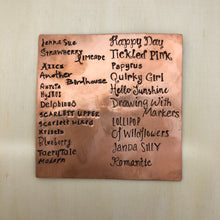 Janna Sue
Strawberry
Limeade
Azteca
Another
Birdhouse
Aunita
Delphinus
Scarlett Upper
Scarlett Mixed
Kristin
Blueberry
FaeryTale
Modern
Happy Day
Tickled Pink
Papyrus
Quirky Girl
Hello Sunshine
Drawing With
Markers
LOLLIPOP
Of Wildflowers
Janda Silly
Romantic